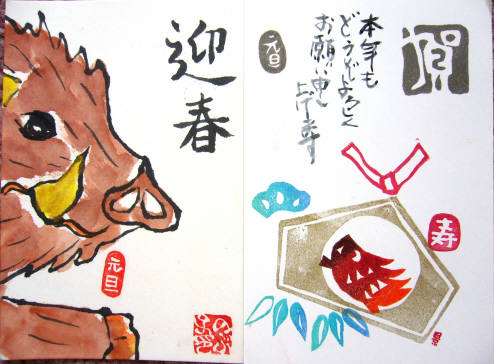 迎春
元旦
賀
本年も
どうぞよろしく
お願い申し
上げます
元旦
寿